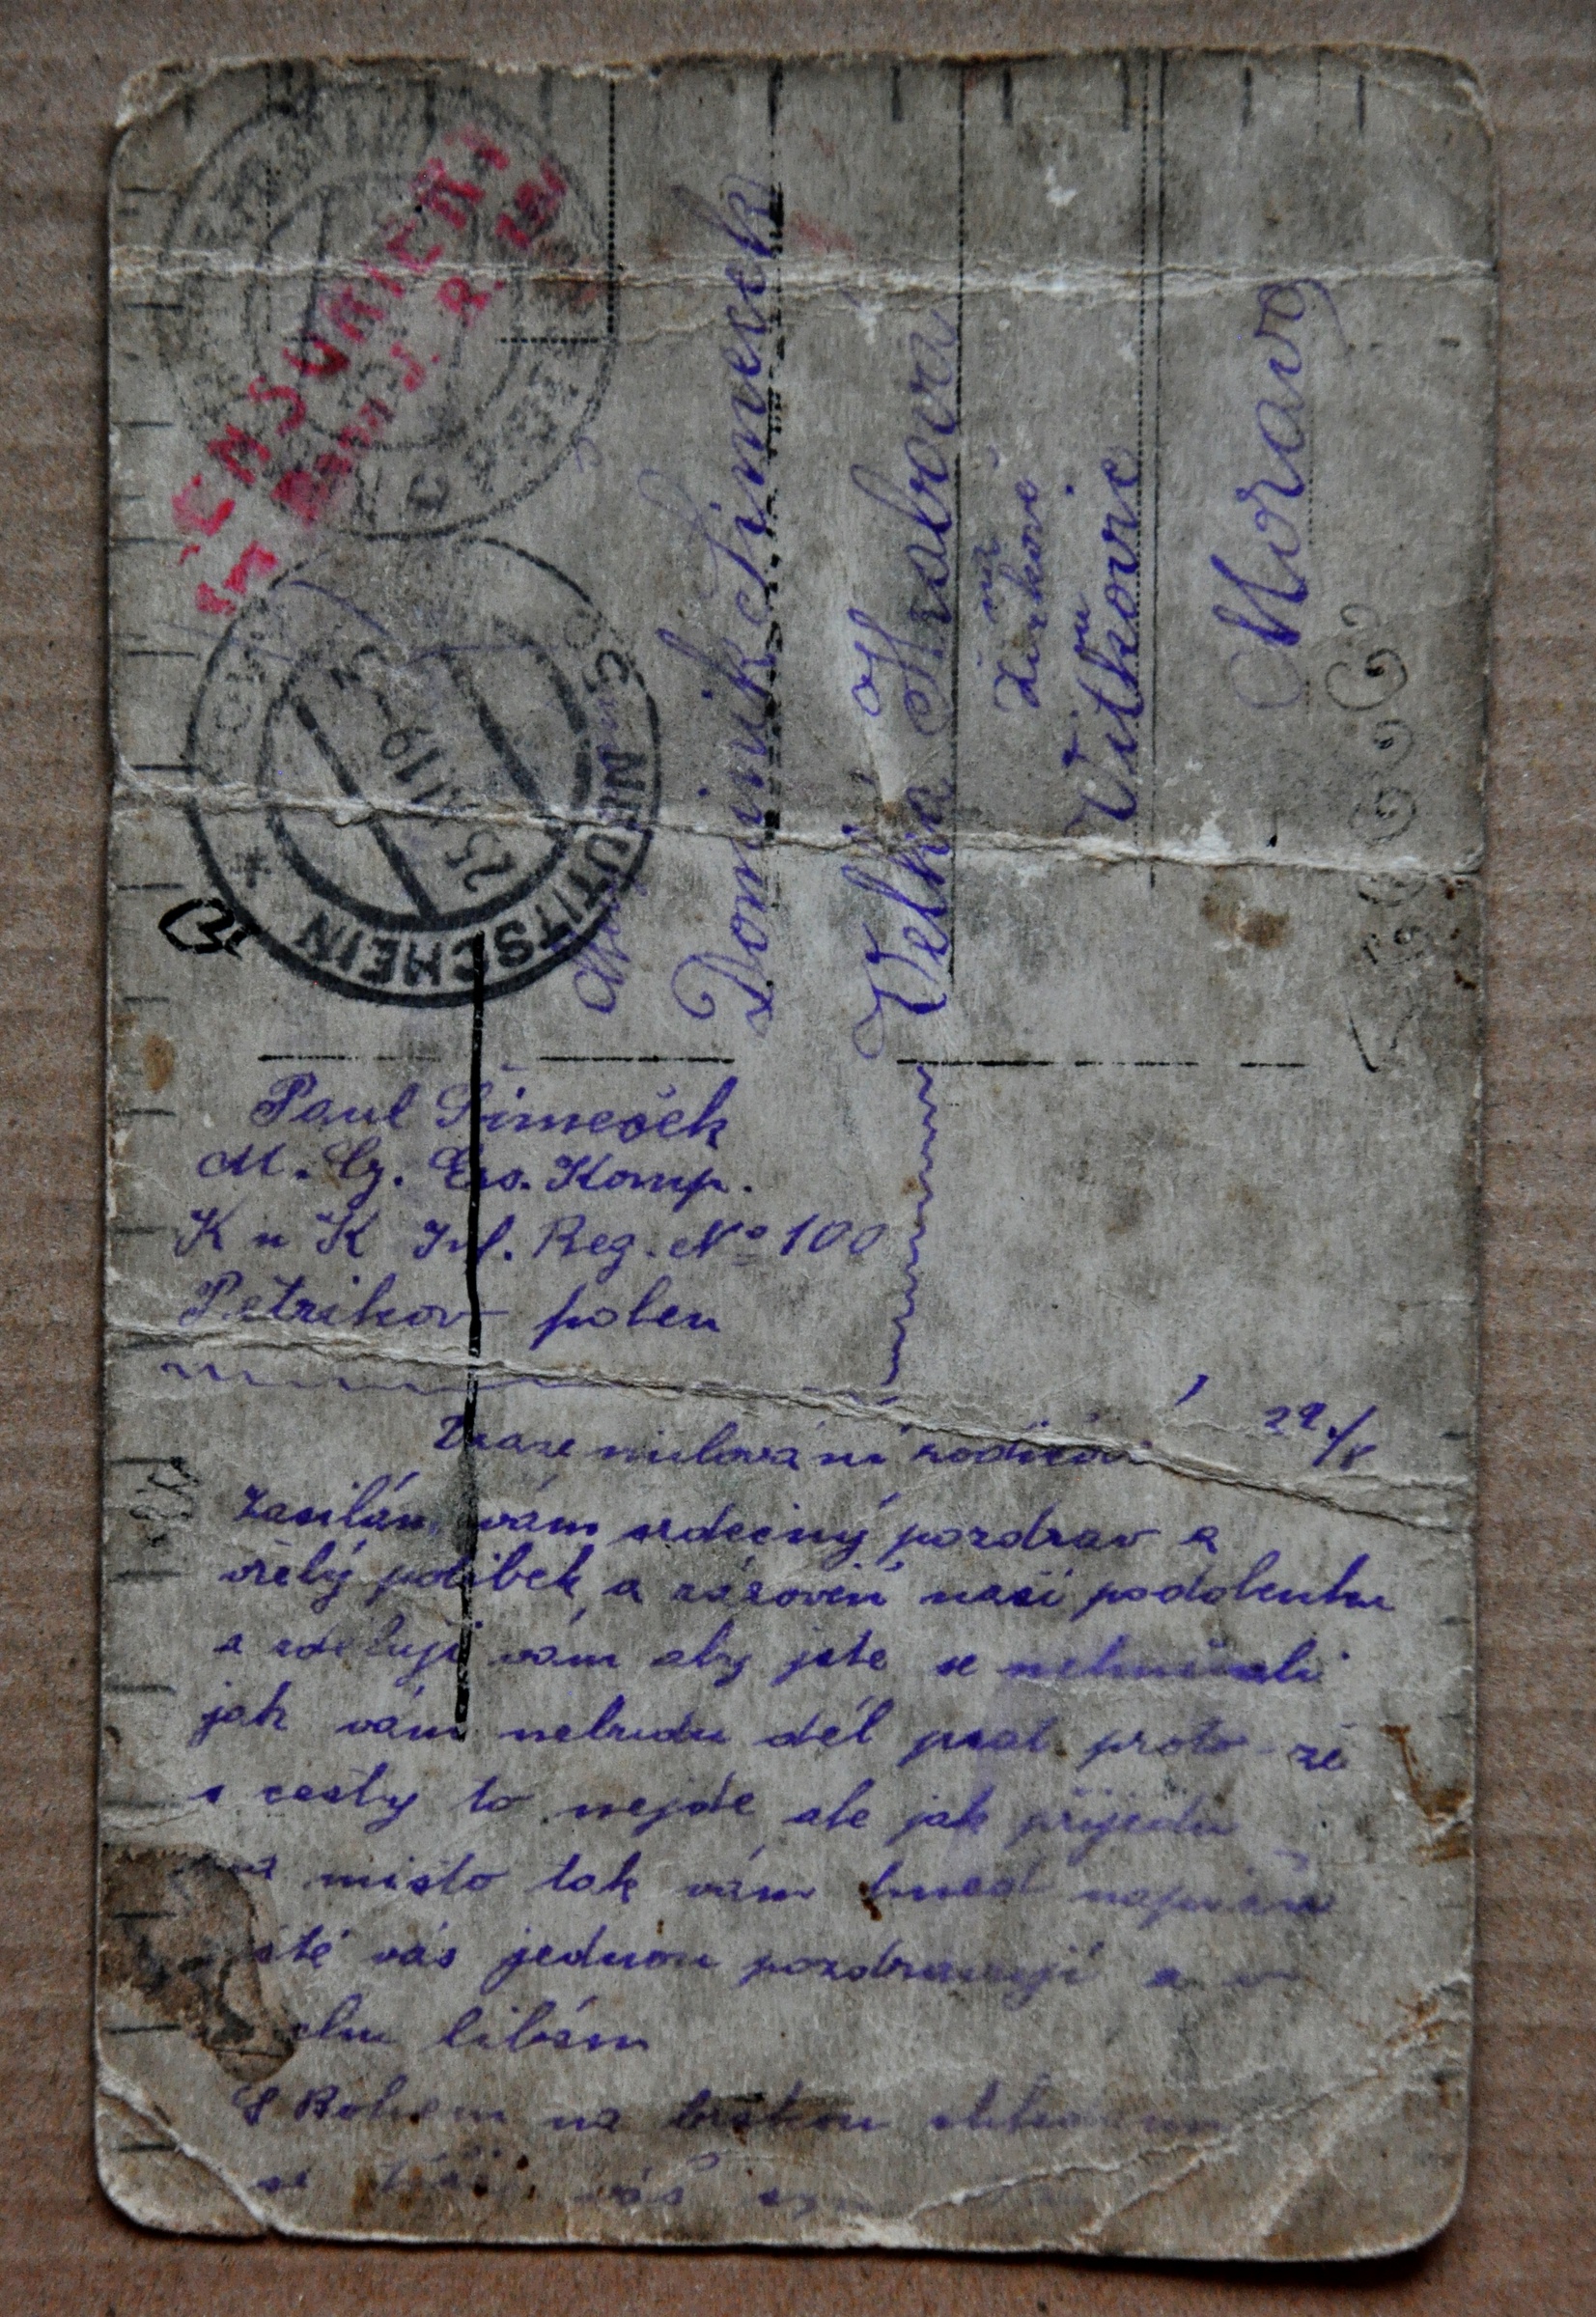 CENSURIERT
J. R.
NEUTITSCHEIN
25 XI 19
Dominik Šimeček
Velká Hrabova
na
Žižkově
u
Vitkovic
Morava
Paul Šimeček
M. Eg. Ers. Komp.
K u K Inf. Reg. No 100
Petrikov polen
29./
Draze milovaní rodičové
Zasilám vám srdečný pozdrav a
vřelý polibek a zároveň naši podolenku
a zděluji vám aby jste se nehněvali
jak vám nebudu dél psat proto že
s cesty to nejde ale jak přijedu
na misto tak vám hned napišu
ště vás jednou pozdravuji a v
chu libám
S Bohem na brzkou
se váš syn